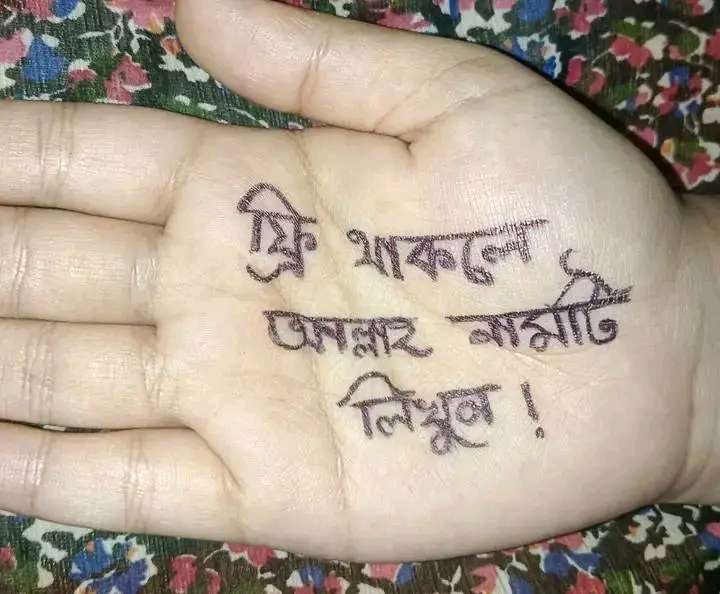 ফ্রি থাকলে
আল্লাহ নামটি
লিখুন !